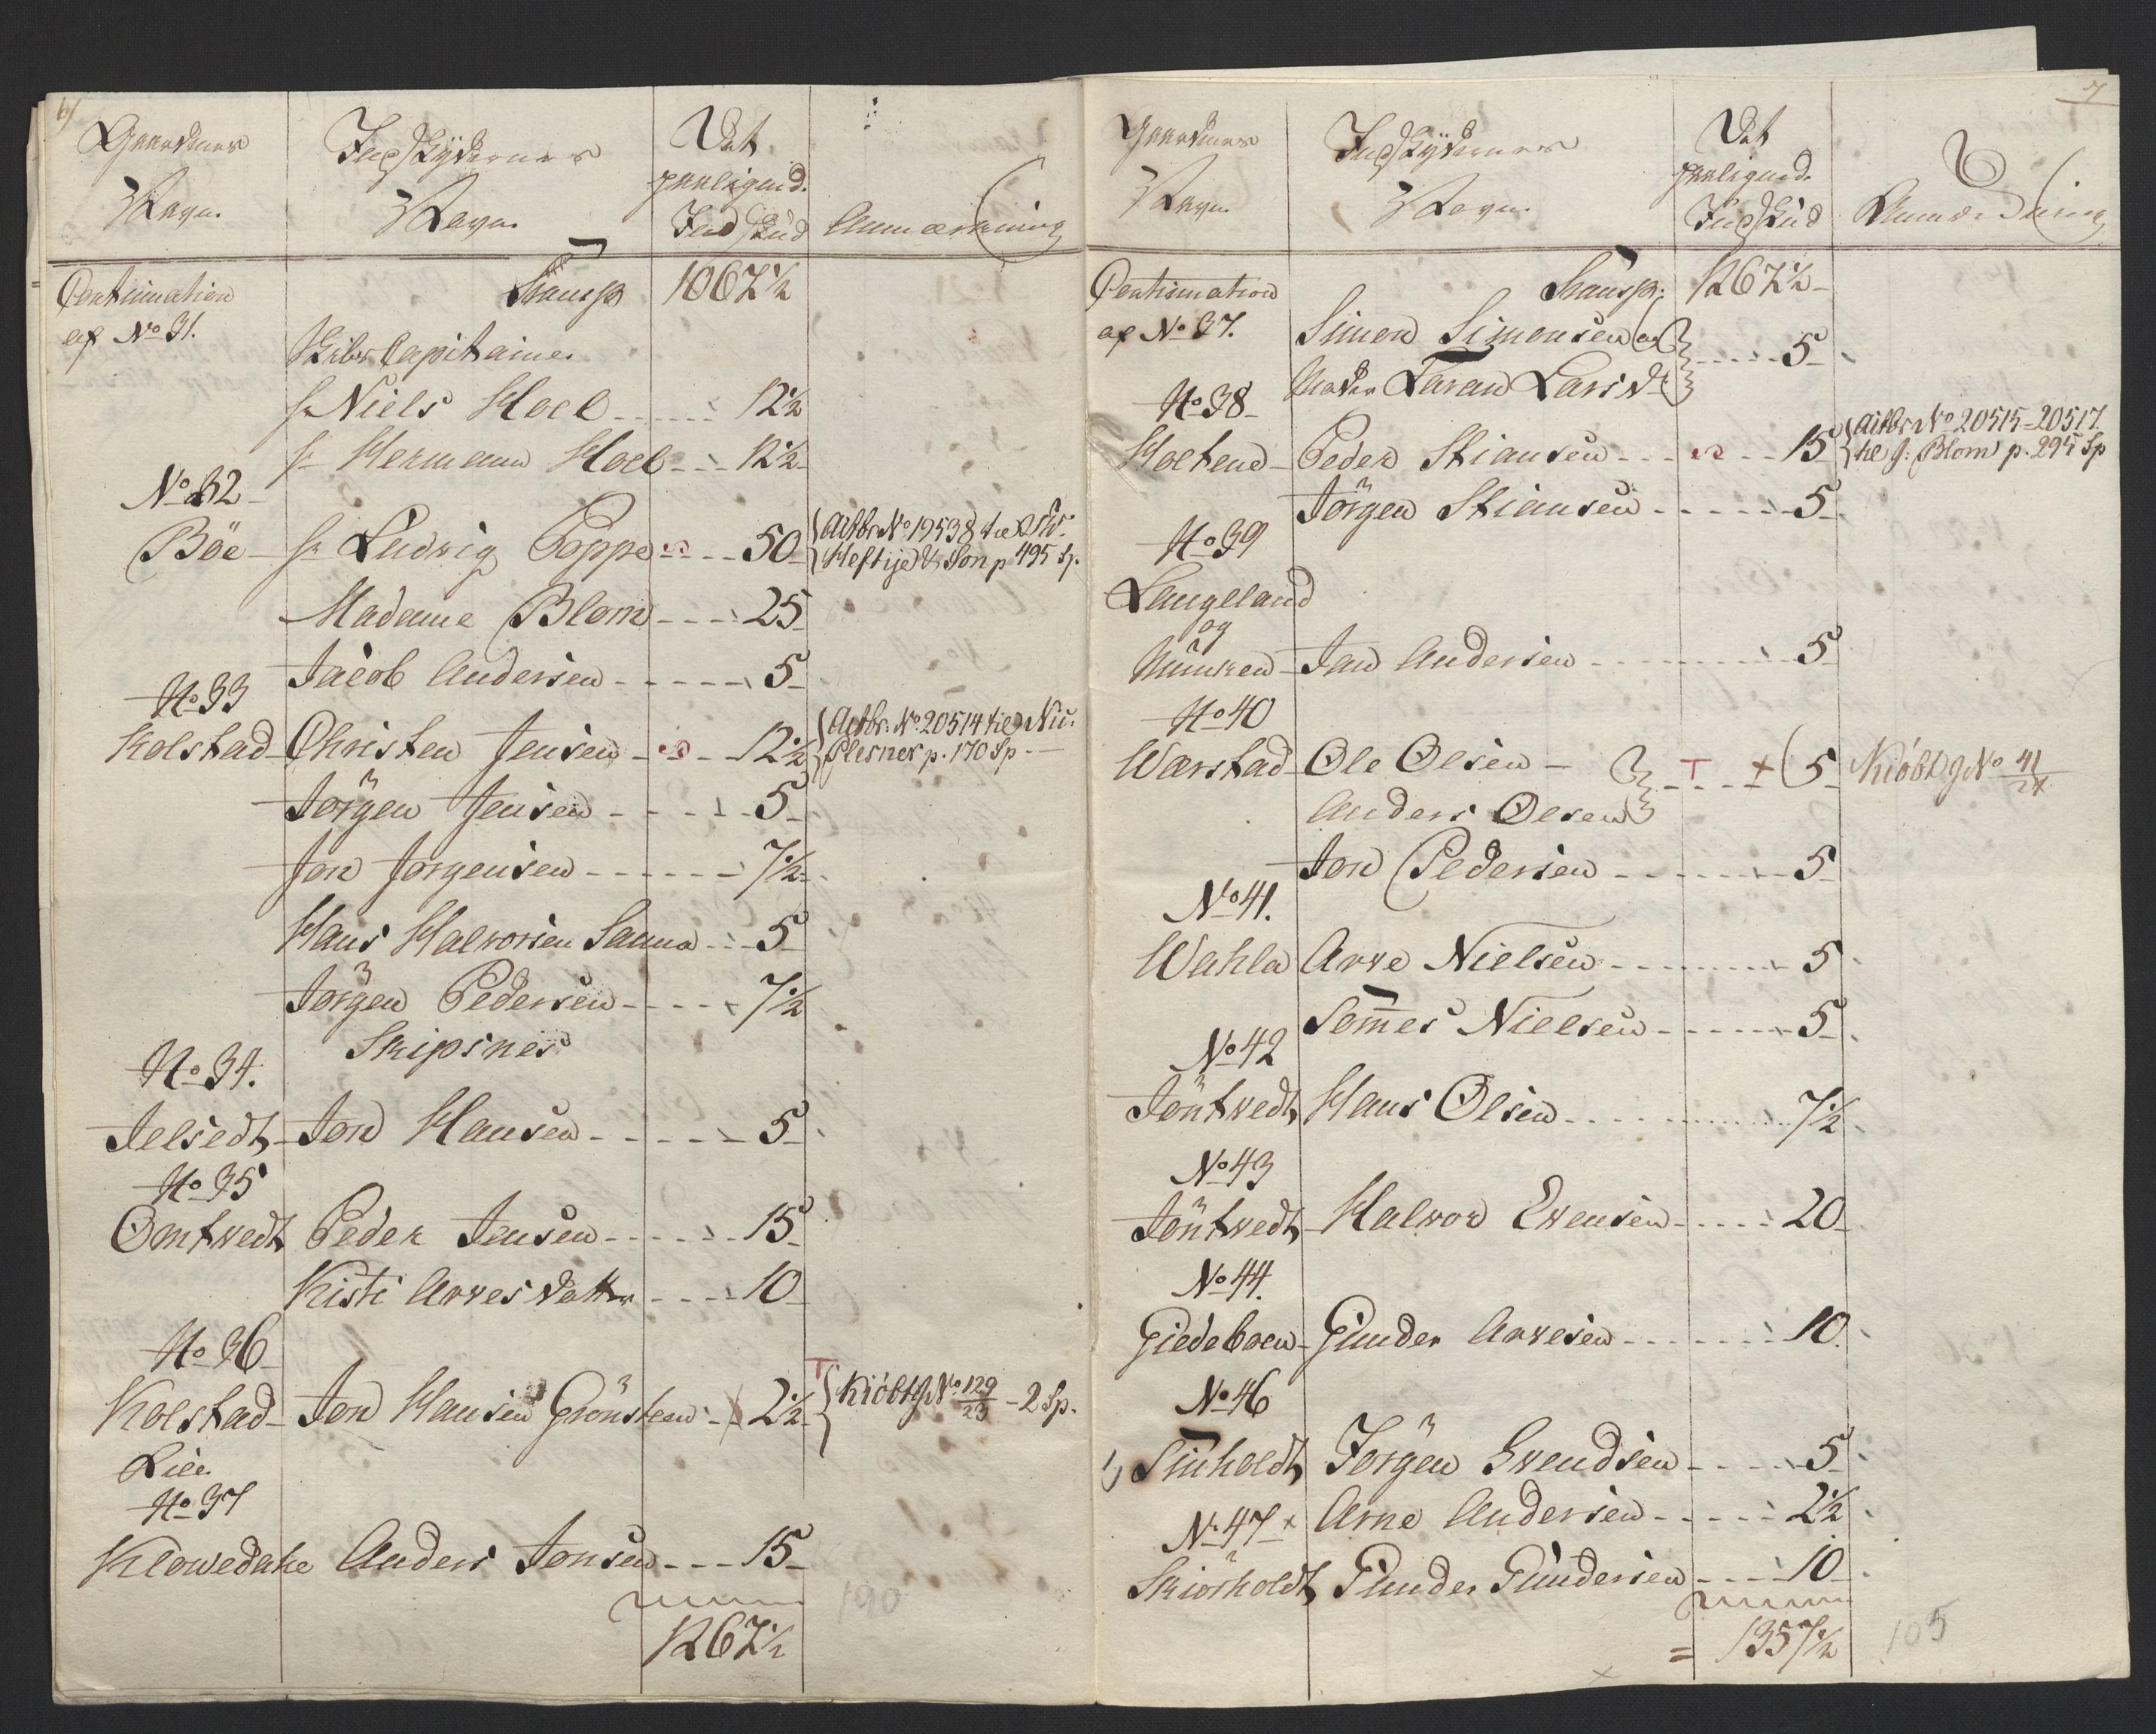 6)
Gaardenes Navn.
Indskydernes Navn.
Det paaligned. Indskud
Anmærkning
Continuation af No 31.
Transp 1067½
Skibs Capitaine
Hr Niels Hoel - - - 12½
Hr Hermann Hoel - - - 12½
No 32
Böe - Hr Ludvig Poppe - - - 50 - {Actbr No 19538 til
Heftije & Son p 495 Sp.
Madame Blom - - - 25
Jacob Andersen - - - 5
No 33
Kolstad - Christen Jensen - - - 12½ {Actbr. No. 20514 til Nic.
Plesner p. 170 Sp. -
Jörgen Jensen - - - 5
Jon Jörgensen - - - 7½
Hans Halvorsen Sanna - - - 5
Jörgen Pedersen - - - 7½
Skipsnes
No 34.
Jelsedt - Jon Hansen - - - 5
No 35
Omtvedt Peder Jensen - - - 15
Kisti Arvesdatter - - - 10
No 36
Kolstad - Jon Hansen Grönsteen - 2½ T {Kiöbt g No 129/23 - 2 Sp.
Lien
No 37
Klovedahe Anders Jonsen - - - 15
1267½
190
7
Gaardenes Navn.
Indskydernes Navn.
Det paaligned. Indskud
Anmærkning
Continuation af No 37.
Transp: 1267½
Simon Simonsen og
Moder Taran Larsdt } - - - 5
No 38
Holtend - Peder Stiansen - - - 15 {Actbr No 20515-20517
til J. Blom p. 295 Sp
Jörgen Stiansen - - - 5
No 39
Langeland
og
Munken - Jan Andersen - - - 5
No 40
Warstad - Ole Olsen -
Anders Olsen } T - - + 5 Kiöbt g No 41/24
Jon Pedersen - - - 5
No 41.
Wahla Arve Nielsen - - - 5
Sommes Nielsen - - - 5
No 42
Töntvedt Hans Olsen - - - 7½
No 43
Töntvedt - Halvor Evensen - - - 20
No 44.
Giedeboen - Gunder Arvesen - - - 10.
No 46
Stuholdt Jörgen Svendsen - - - 5
Arne Andersen - - - 2½
No 47 x
Skiörholdt Gunder Gundersen - - - 10
= 1357½
105